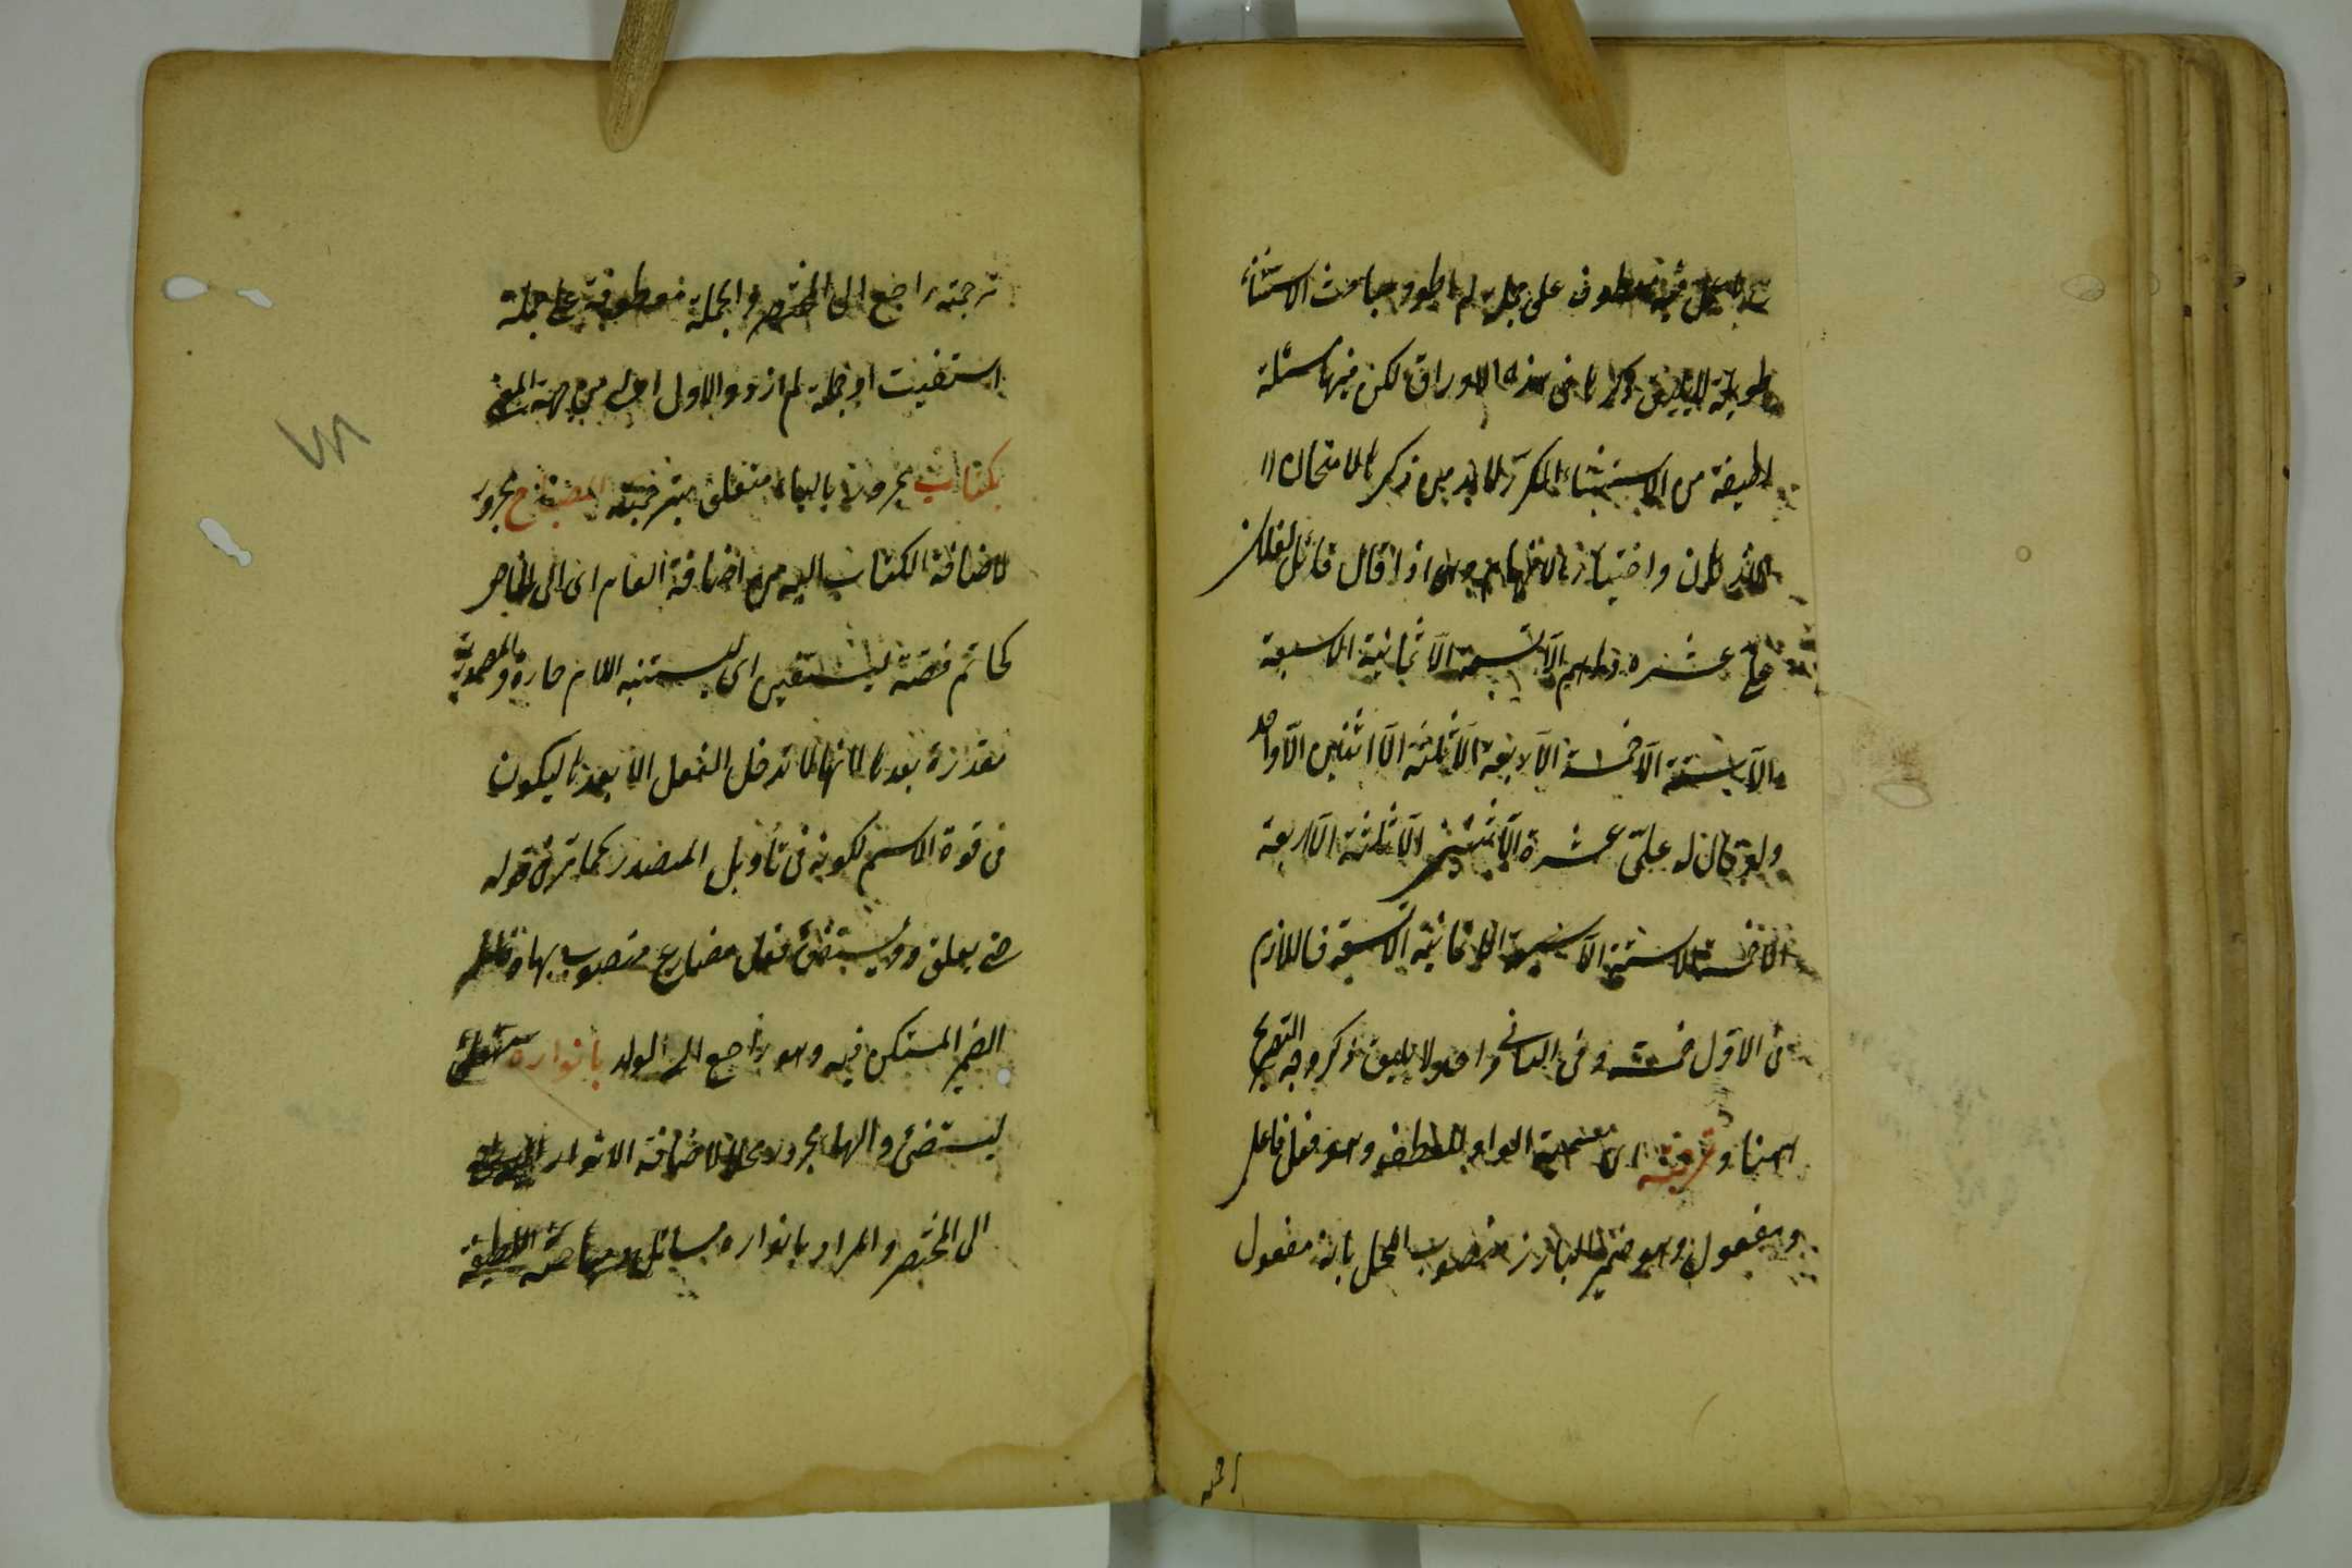 معطوف على جملة لم اطو ومباحث الاستثناء
طويلة لا يليق ذكرها فى هذه الاوراق لكن فيها مسئلة
لطيفة من الاستثناء المكرر لابد من ذكرها لامتحان
واختبار الافهام وهى اذا قال قائل لفلان
علىّ عشره دراهم الّا تسعة الّا ثمانية الّا سبعة
الّا ستة الّا خمسة الّا اربعة الّا ثلثة الّا اثنين الّا واحد
ولو قال له علىّ عشرة الّا اثنين الّا ثلثة الّا اربعة
الّا خمسة الّا ستة الّا سبعة الّا ثمانية الّا تسعة فاللازم
فى الاوّل خمسة وفى الثانى واحد ولا يليق ذكر وجه التصريح
ههنا وترجمته اى سميته الواو للعطف وهو فعل فاعل
ومفعول وهو ضمير البارز منصوب المحل بانه مفعول
ترجمته راجع الى المختصر والجملة معطوفة على جملة
استفيت او جملة لم ازد والاول اولى من جهة المعنى
بكتاب مجرور بالباء متعلق بترجمته المصباح مجرور
لاضافة الكتاب اليه من اضافة العام اى الى الخاص
كخاتم فضة ليستضئ اى ليستنبه اللام جارة والمصدرية
مقدرة بعدها لانها لا تدخل الفعل الا بعدها ليكون
فى قوة الاسم لكونه فى تأويل المصدر كما مرّ فى قوله
حتى يعلق ويستضئ فعل مضارع منصوب بها وفاعله
الضمير المستكن فيه وهو راجع الى الولد بانواره متعلق
ليستضئ والهاء مجرور محلا لاضافة الانوار
الى المختصر والمراد بانواره مسائل ومباحثه اللطيفة